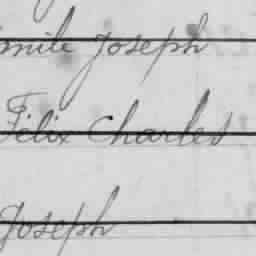 mile Joseph
Félix Charles
Joseph